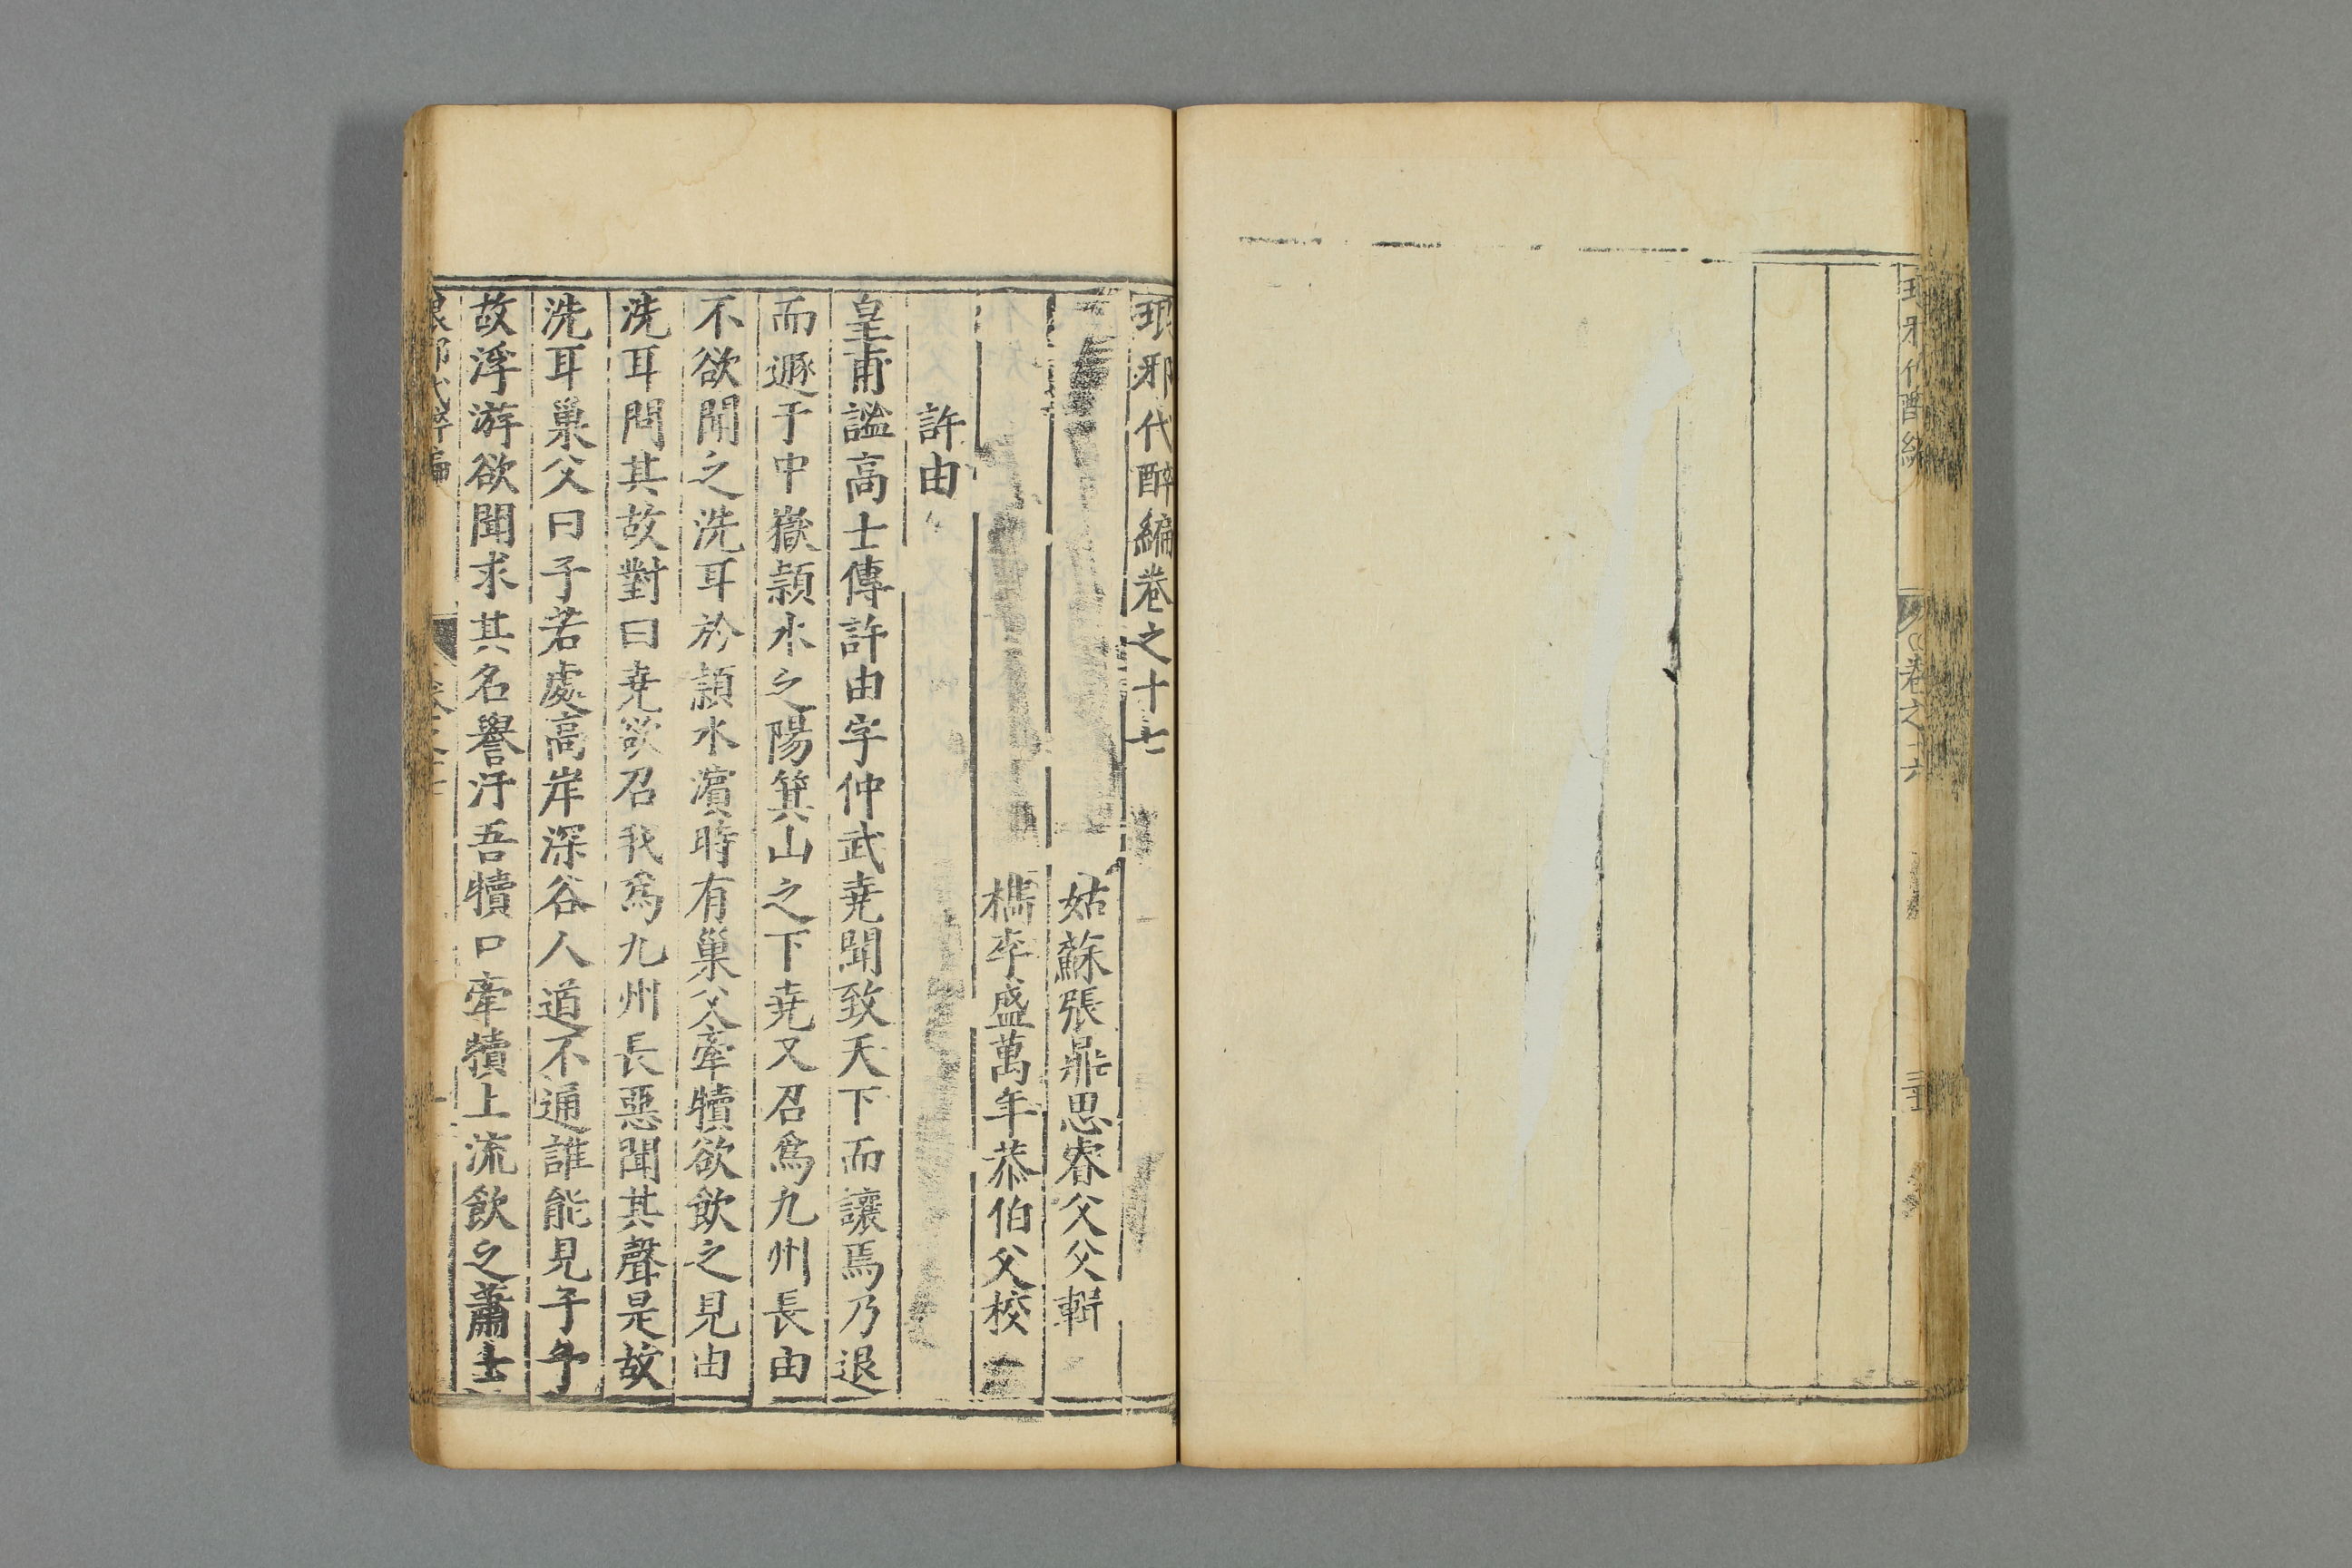 琅邪代醉編
卷之十六
琅邪代醉編卷之十七
姑蘇張鼎思睿父父輯
檇李盛萬年恭伯父校
許由
皇甫謐高士傳許由字仲武尭聞致天下而讓焉乃退
而遯于中嶽潁水之陽箕山之下尭又召爲九州長由
不欲聞之洗耳於潁水濵時有巢父牽犢欲飲之見由
洗耳問其故對曰尭欲召我爲九州長惡聞其聲是故
洗耳巢父曰子若處高岸深谷人道不通誰能見子子
故浮游欲聞求其名譽汙吾犢口牽犢上流飲之蕭士
琅邪代醉編
卷之十七